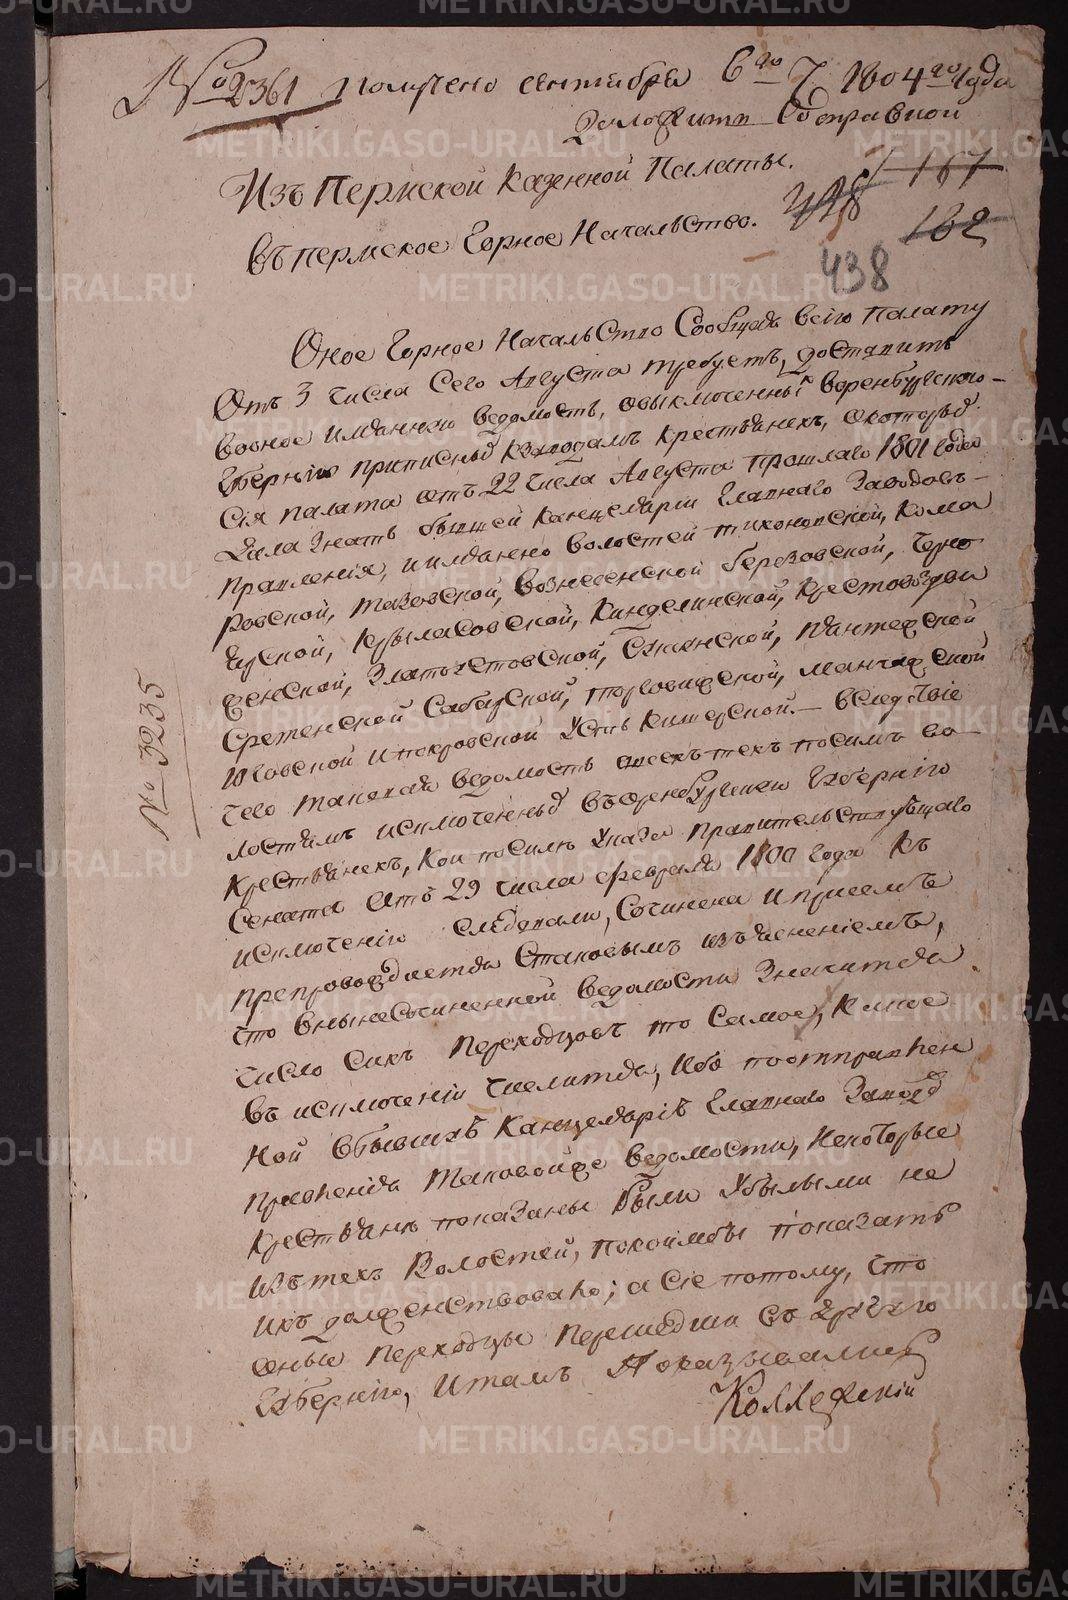 № 2361 Получено сентября 6го 7 1804го года
Доложить с справкой
Изъ Пермской Казенной Палаты.
въ пермское Горное Начальство.
167
438
162
438
Оное Горное Начальство Сообща всѣю Палату
Отъ 3 числа Сего Августа требуетъ, доставить
ведомость,
Губернiю приписныхъ Кзаводамъ крестьянехъ, окоторыхъ
Сiя палата отъ 22 числа Августа прошлаго 1801 года
Дала Знать бывшей Канцелярiи Главнаго Заводовъ
Правленiя, иимянно волостей тихоновской, Кома
ровской, тазовской, вознесенской березовской, Черно
Ярской, Крыласовской, Кинделинской, Крестовоздви
женской, Златоустовской, Сажинской,
Сретенской Сабарской, торговижской, манчажской
Юговской ипокровской Усть Кишерской. — вследствiе
чего таковая ведомость отехъ посимъ во
лостямъ исключенныхъ въоренбургскую Губернiю
Крестьянехъ, кои посилѣ Указа правительствующаго
Сената Отъ 29 числа февраля 1800 года къ
исключенiю следовали, Сочинена иприсемъ
препровождается Стаковымъ изъясненiемъ,
что внынесочиненной ведомости Значится
число Сихъ Переходцовъ то Самое, Кое
въ исключенiи числится, Ибо поотправлен
ной вбывшую Канцелярiю Главнаго Завод
правленiя таковойже ведомости, некоторые
Крестьяне показаны были Убылыми не
изъ техъ Волостей, покоимбы показать
ихъ долженствовало; а Сiе потому, что
оные переходцы перешедши съ другую
Губернiю, итамъ Показывались
Коллежскiй
№ 3235
METRIKI.GASO-URAL.RU